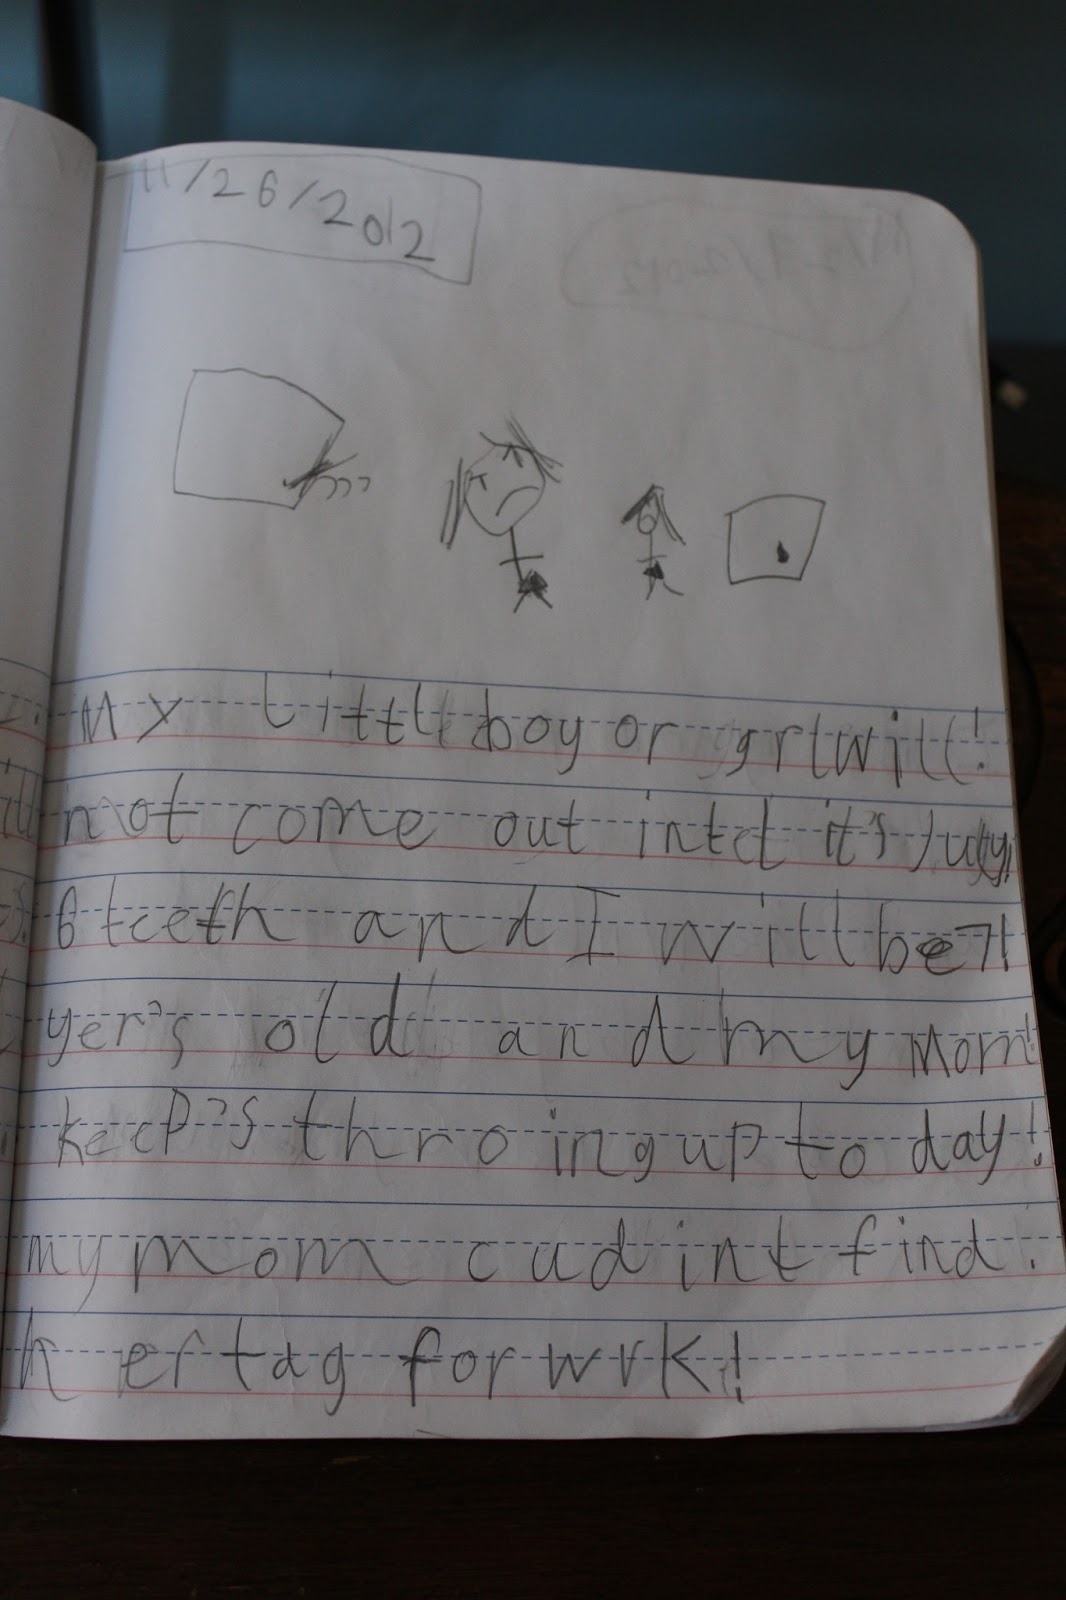 11/26/2012
My littll boy or grl will!
not come out intel it's July!
6 teeth and I will be 7!
yer's old and my Mom!
keep's throing up to day!
my mom cudint find!
her tag for wrk!